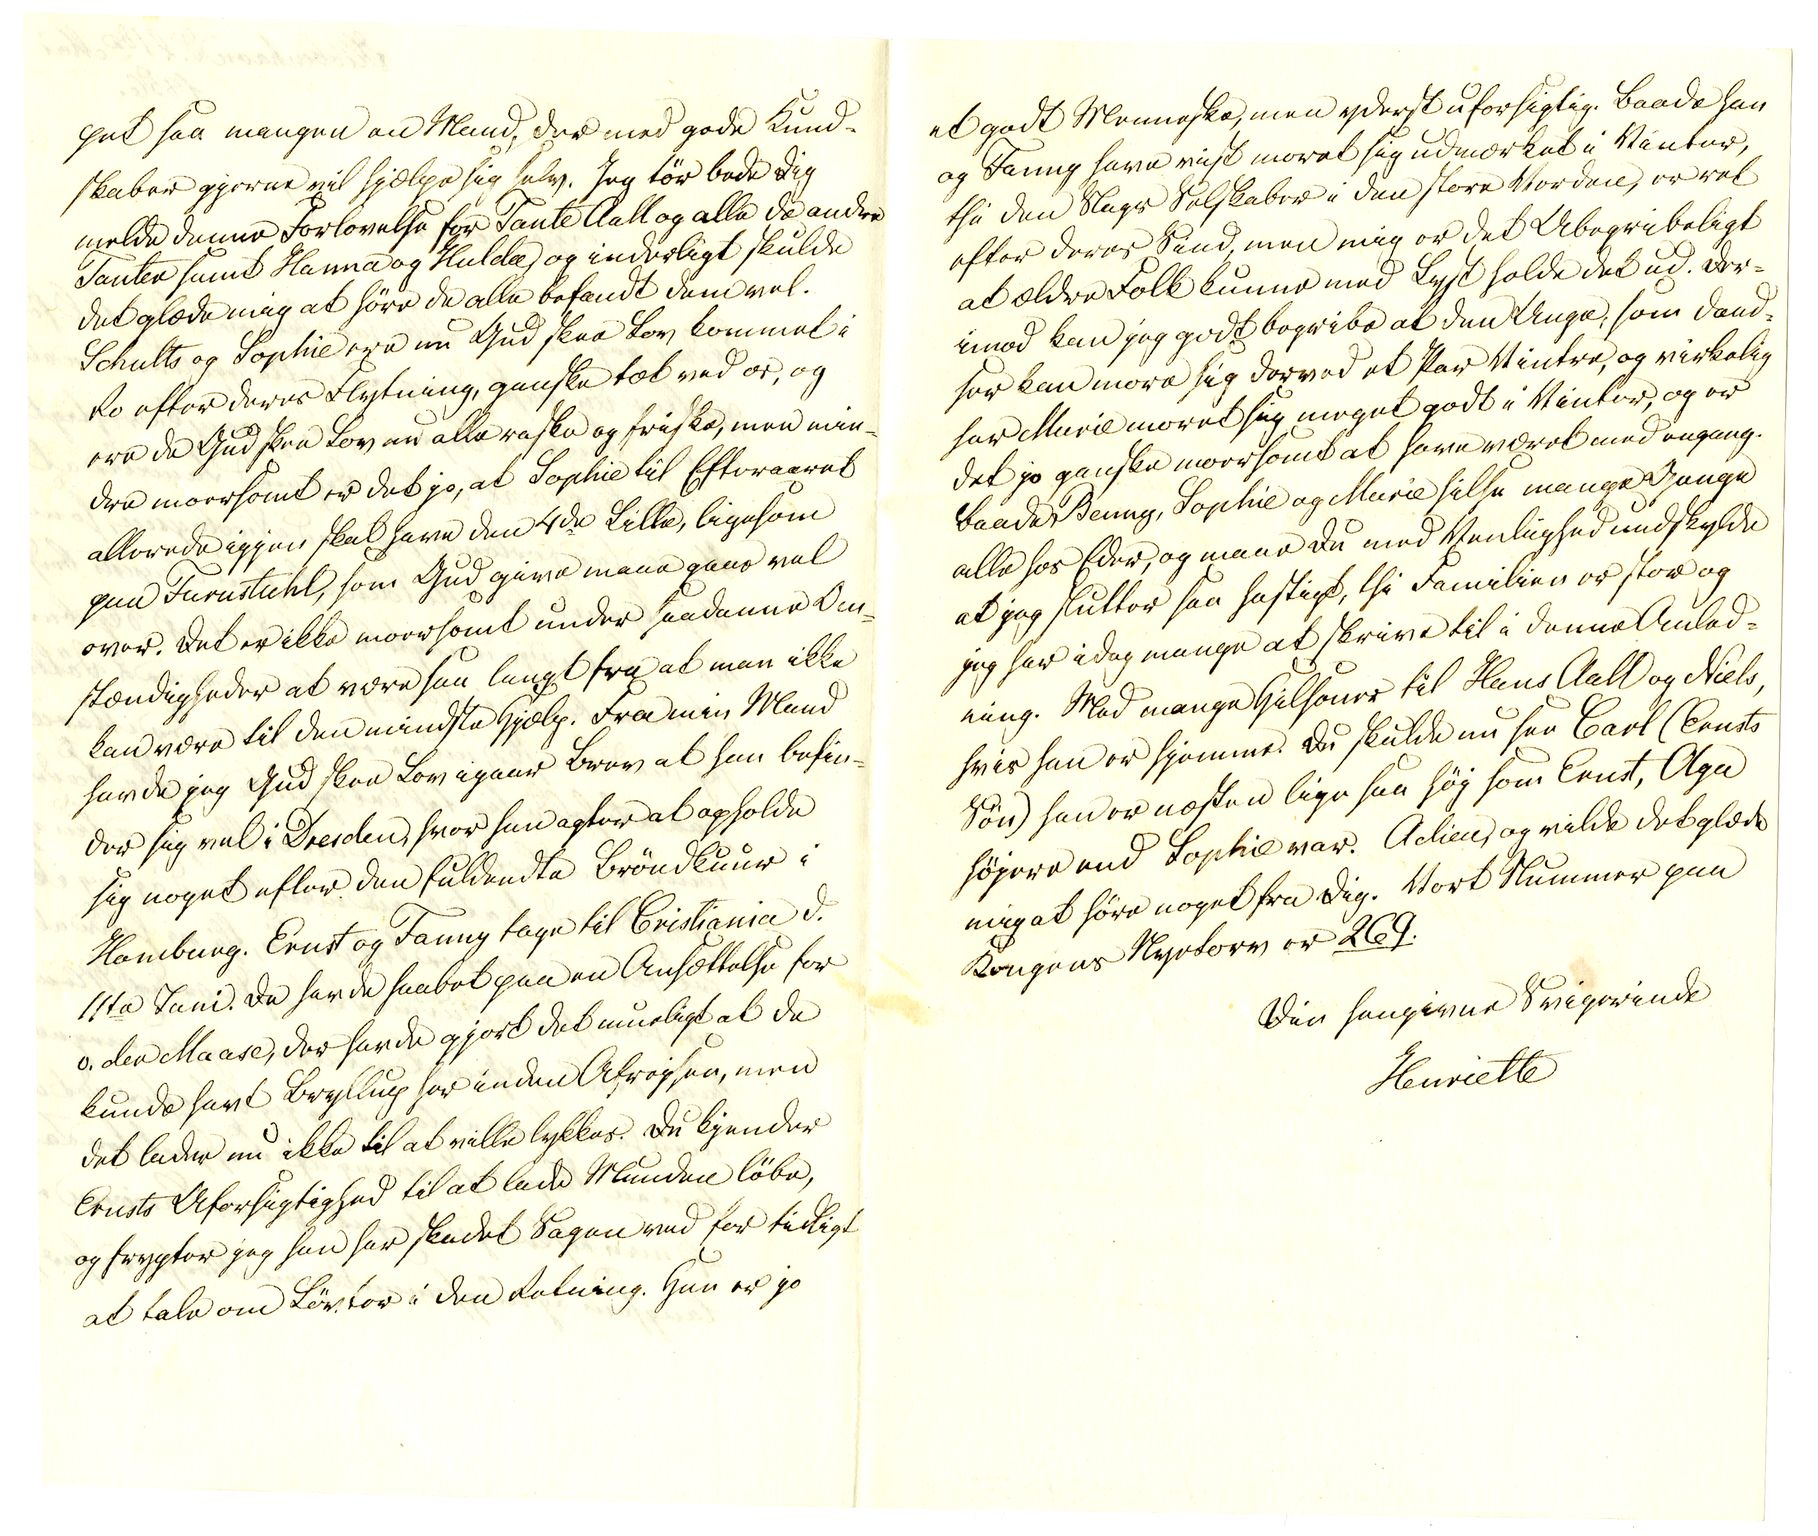 get saa mangen en Mand, der med gode Kund-
skaber gjerne vil hjælpe sig selv. Jeg tör bede Dig
melde denne Forlovelse for Tante Aall og alle de andre
Tanter samt Hanna og Hulda, og inderligt skulde
det glæde mig at höre de alle befandt dem vel.
Schults og Sophie ere nu Gud skee Lov kommet i
Ro efter deres Flytning, ganske tæt ved os, og
ere de Gud skee Lov nu alle raske og friske, men min-
dre moersomt er det jo, at Sophie til Efteraaret
allerede igjen skal have den 4de Lille, ligesom
paa Turnstuhl, som Gud give maae gaae vel
over. Det er ikke moersomt under saadanne Om-
stændigheder at være saa langt fra at man ikke
kan være til den mindste Hjælp. Fra min Mand
havde jeg Gud skee Lov igaar Brev at han befin-
der sig vel i Dresden, hvor han agter at opholde
sig noget efter den fuldendte Bröndkuur i
Homburg. Ernst og Fanny tage til Cristiania d.
11te Juni. De havde haabet paa en Ansættelse for
v. der Maase, der havde gjort det mueligt at de
kunde havt Bryllup her inden Afrejsen, men
det lader nu ikke til at ville lykkes. Du kjender
Ernsts Uforsigtighed til at lade Munden löbe,
og frygter jeg han har skadet Sagen ved for tidligt
at tale om Lövter i den Retning. Han er jo
et godt Menneske, men yderst uforsigtig. Baade han
og Fanny have vist moret sig udmærket i Vinter,
thi den Slags Selskaber i den store Verden, er ret
efter deres Sind, men mig er det Ubegribeligt
at ældre Folk kunne med Lyst holde det ud. Der-
imod kan jeg godt begribe at den Unge, som dand-
ser kan more sig derved et Par Vintre, og virkelig
har Marie moret sig meget godt i Vinter, og er
det jo ganske moersomt at have været med engang.
Baade Benny, Sophie og Marie hilse mange Gange
alle hos Eder, og maae Du med Venlighed undskylde
at jeg slutter saa hastigt, thi Familien er stor og
jeg har idag mange at skrive til i denne Anled-
ning. Med mange Hilsener til Hans Aall og Niels,
hvis han er hjemme. Du skulde nu see Carl (Ernsts
Sön) han er næsten lige saa höj som Ernst, Aga
höjere end Sophie var. Adieu, og vilde det glæde
mig at höre noget fra Dig. Vort Nummer paa
Kongens Nyetorv er 269.
Din hengivne Svigerinde
Henriette